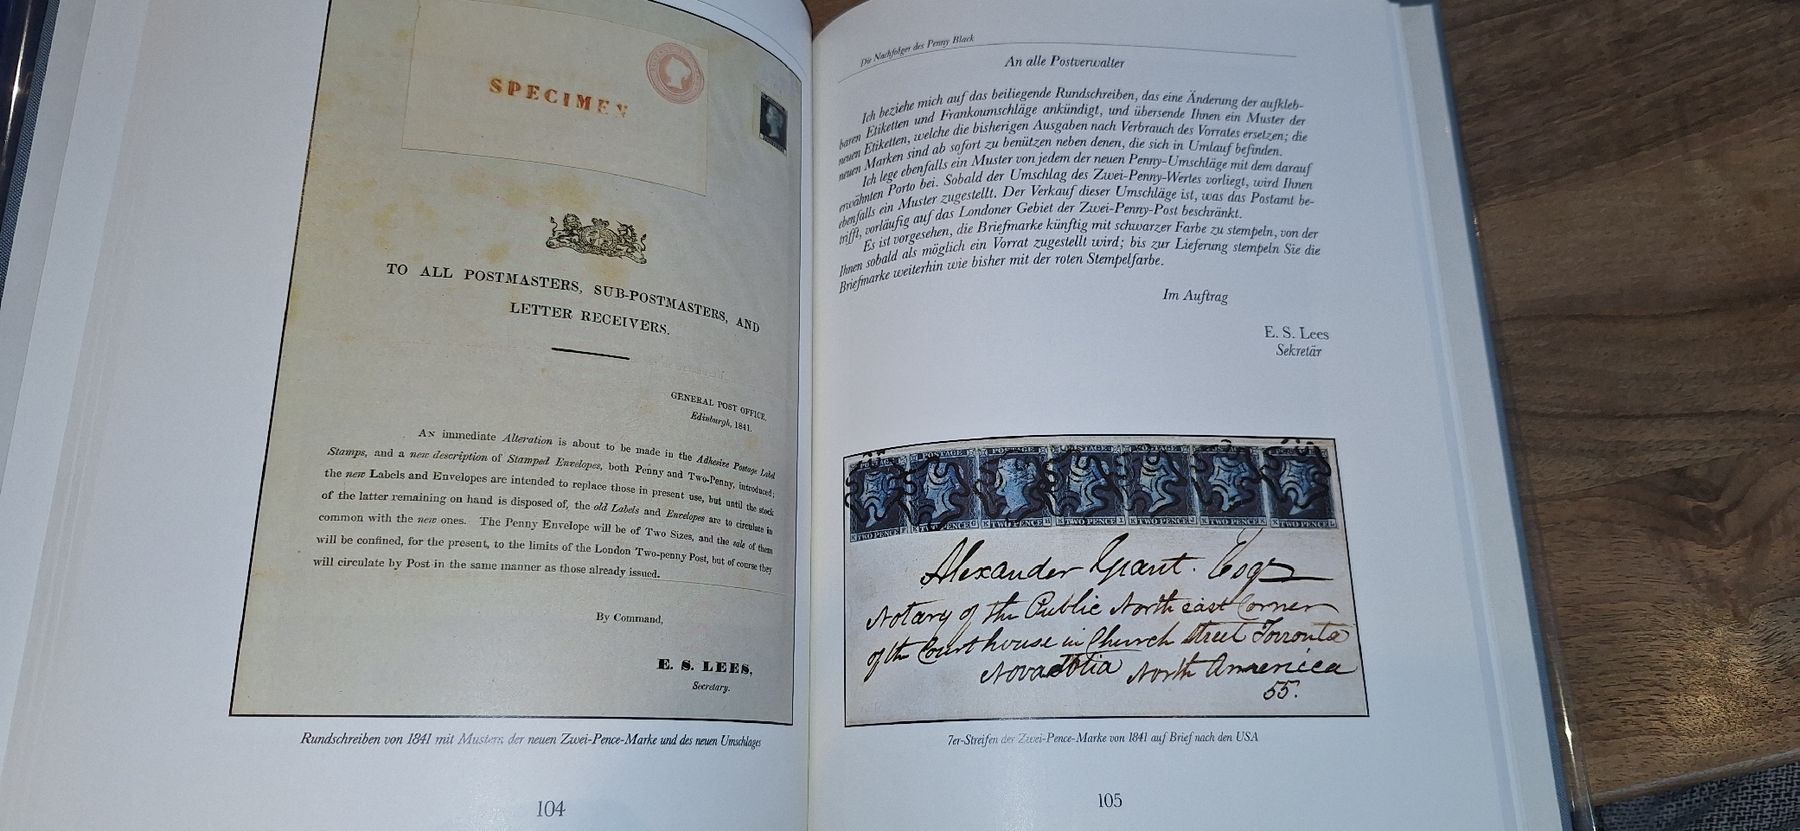 SPECIMEN
TO ALL POSTMASTERS, SUB-POSTMASTERS, AND
LETTER RECEIVERS.
GENERAL POST OFFICE,
Edinburgh, 1841.
AN immediate Alteration is about to be made in the Adhesive Postage Label
Stamps, and a new description of Stamped Envelopes, both Penny and Two-Penny, introduced;
the new Labels and Envelopes are intended to replace those in present use, but until the stock
of the latter remaining on hand is disposed of, the old Labels and Envelopes are to circulate in
common with the new ones. The Penny Envelope will be of Two Sizes, and the sale of them
will be confined, for the present, to the limits of the London Two-penny Post, but of course they
will circulate by Post in the same manner as those already issued.
By Command,
E. S. LEES,
Secretary.
Rundschreiben von 1841 mit Mustern der neuen Zwei-Pence-Marke und des neuen Umschlages
104
Die Nachfolger des Penny Black
An alle Postverwalter
Ich beziehe mich auf das beiliegende Rundschreiben, das eine Änderung der aufkleb-
baren Etiketten und Frankoumschläge ankündigt, und übersende Ihnen ein Muster der
neuen Etiketten, welche die bisherigen Ausgaben nach Verbrauch des Vorrates ersetzen; die
neuen Marken sind ab sofort zu benützen neben denen, die sich in Umlauf befinden.
Ich lege ebenfalls ein Muster von jedem der neuen Penny-Umschläge mit dem darauf
erwähnten Porto bei. Sobald der Umschlag des Zwei-Penny-Wertes vorliegt, wird Ihnen
ebenfalls ein Muster zugestellt. Der Verkauf dieser Umschläge ist, was das Postamt be-
trifft, vorläufig auf das Londoner Gebiet der Zwei-Penny-Post beschränkt.
Es ist vorgesehen, die Briefmarke künftig mit schwarzer Farbe zu stempeln, von der
Ihnen sobald als möglich ein Vorrat zugestellt wird; bis zur Lieferung stempeln Sie die
Briefmarke weiterhin wie bisher mit der roten Stempelfarbe.
Im Auftrag
E. S. Lees
Sekretär
POSTAGE POSTAGE POSTAGE POSTAGE POSTAGE
TWO PENCE TWO PENCE TWO PENCE TWO PENCE TWO PENCE TWO PENCE TWO PENCE
Alexander Grant. Esqr
Notary of the Public North east Corner
of the Court house in Church Street Torronta
Nova Scotia North Americca
55.
7er-Streifen der Zwei-Pence-Marke von 1841 auf Brief nach den USA
105